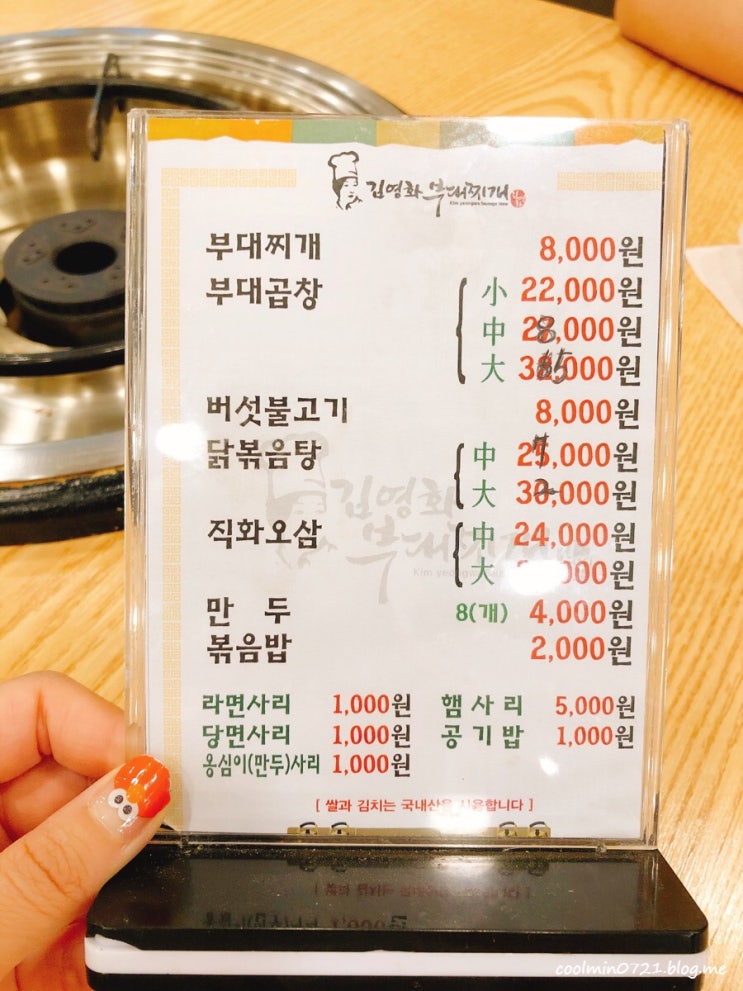 김영화 부대찌개
부대찌개 8,000원
부대곱창 小 22,000원
中 28,000원
大 35,000원
버섯불고기 8,000원
닭볶음탕 中 27,000원
大 32,000원
직화오삼 中 24,000원
大 ,000원
만 두 8(개) 4,000원
볶음밥 2,000원
라면사리 1,000원 햄사리 5,000원
당면사리 1,000원 공기밥 1,000원
옹심이(만두)사리 1,000원
[ 쌀과 김치는 국내산을 사용합니다 ]
coolmin0721.blog.me